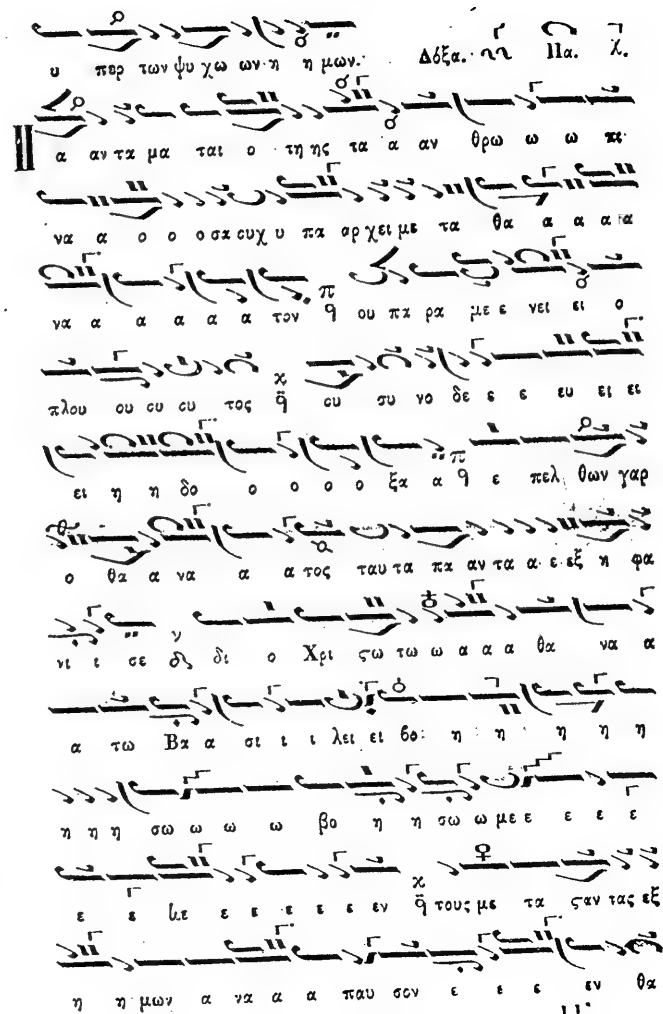 υ περ των ψυ χω ων η η μων. Δόξα. Πα. χ.
Π α αν τα μα ται ο τη ης τα α αν θρω ω ω πι
να α ο ο ο σα ουχ υ πα αρ χει με τα θα α α α α
να α α α α α τον π ου πα ρα με ε νει ει ο
πλου ου ου ου τος κ ου συ νο δε ε ε ευ ει ει
ει η η δο ο ο ο ο ξα α π ε πελ θων γαρ
ο θα α να α α τος ταυ τα πα αν τα α ε εξ η φα
νι ι σε ν δι ο Χρι ϛω τω ω α α α θα να α
α τω Βα α σι ι ι λει ει βο η η η η η
η η η σω ω ω ω βο η η σω ω με ε ε ε ε
ε ε με ε ε ε ε ε εν κ τους με τα ϛαν τας εξ
η η μων α να α α παυ σον ε ε ε εν θα